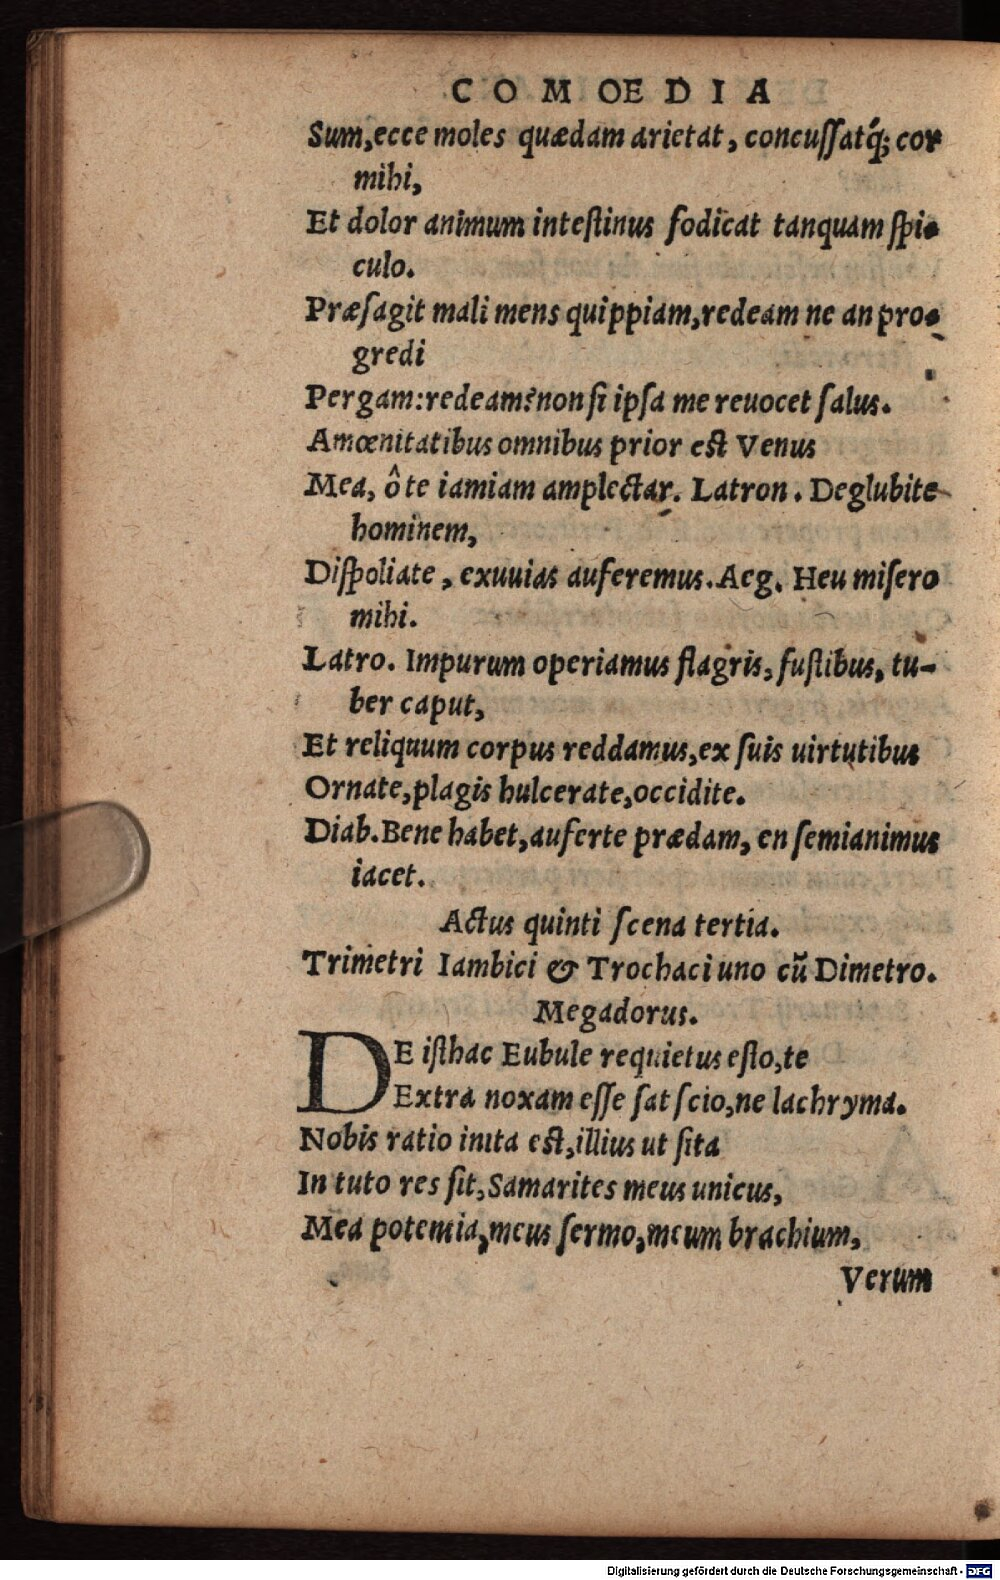 COMOEDIA
Sum, ecce moles quædam arietat, concussatq́; cor
mihi,
Et dolor animum intestinus fodicat tanquam spi-
culo.
Præsagit mali mens quippiam, redeam ne an pro-
gredi
Pergam: redeam? non si ipsa me reuocet salus.
Amœnitatibus omnibus prior est Venus
Mea, ô te iamiam amplectar. Latron. Deglubite
hominem,
Dispoliate, exuuias auferemus. Aeg. Heu misero
mihi.
Latro. Impurum operiamus flagris, fustibus, tu-
ber caput,
Et reliquum corpus reddamus, ex suis uirtutibus
Ornate, plagis hulcerate, occidite.
Diab. Bene habet, auferte prædam, en semianimus
iacet.
Actus quinti scena tertia.
Trimetri Iambici & Trochaci uno cũ Dimetro.
Megadorus.
DE isthac Eubule requietus esto, te
Extra noxam esse sat scio, ne lachryma.
Nobis ratio inita est, illius ut sita
In tuto res sit, Samarites meus unicus,
Mea potentia, meus sermo, meum brachium,
Verum
Digitalisierung gefördert durch die Deutsche Forschungsgemeinschaft - DFG